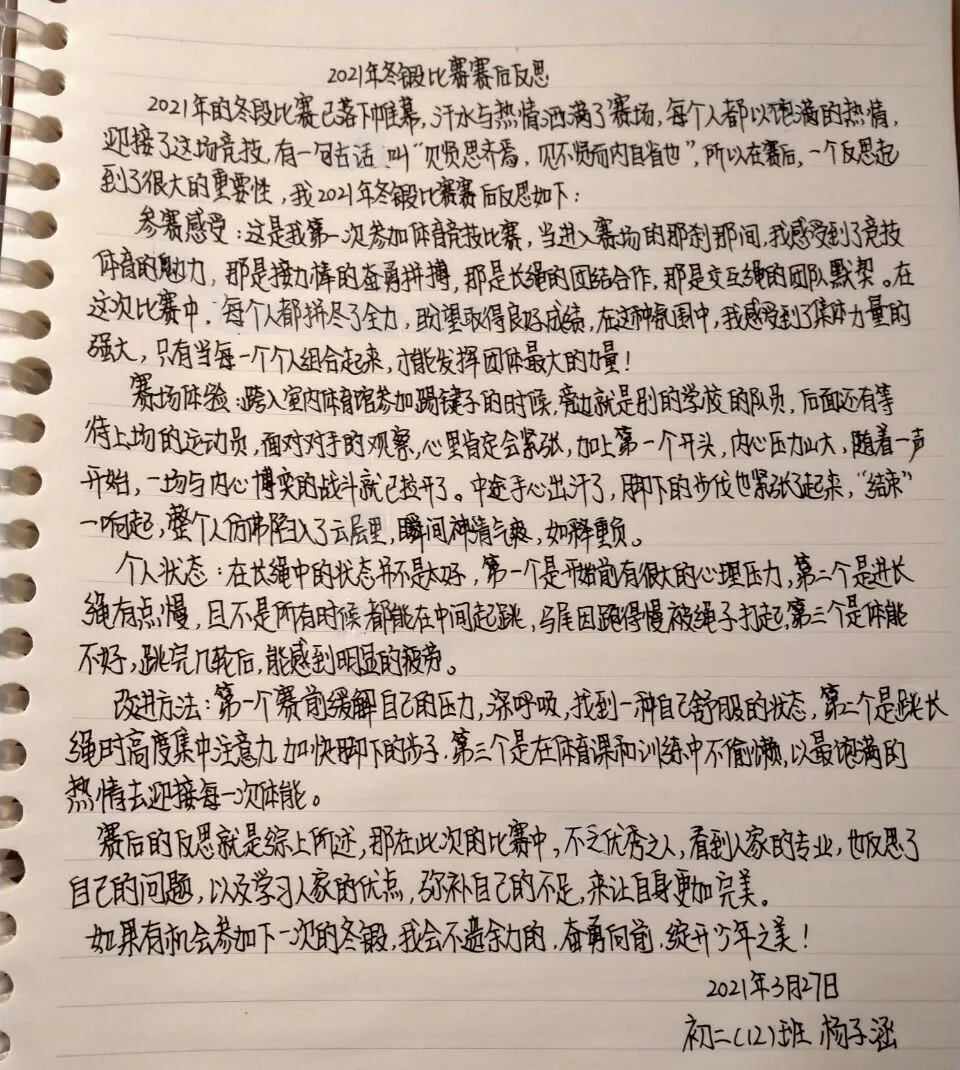 2021年冬锻比赛赛后反思
2021年的冬段比赛已落下帷幕，汗水与热情洒满了赛场，每个人都以饱满的热情，
迎接了这场竞技，有一句古话 叫“见贤思齐焉，见不贤而内自省也”，所以在赛后，一个反思起
到了很大的重要性，我2021年冬锻比赛赛后反思如下：
参赛感受：这是我第一次参加体育竞技比赛，当进入赛场的那刹那间，我感受到了竞技
体育的魅力，那是接力棒的奋勇拼搏，那是长绳的团结合作，那是交互绳的团队默契。在
这次比赛中，每个人都拼尽了全力，盼望取得良好成绩，在这种氛围中，我感受到了集体力量的
强大，只有当每一个个人组合起来，才能发挥团体最大的力量！
赛场体验：跨入室内体育馆参加踢键子的时候，旁边就是别的学校的队员，后面还有等
待上场的运动员，面对对手的观察，心里肯定会紧张，加上第一个开头，内心压力山大，随着一声
开始，一场与内心博奕的战斗就已拉开了。中途手心出汗了，脚下的步伐也紧张了起来，“结束”
一响起，整个人仿佛陷入了云层里，瞬间神清气爽，如释重负。
个人状态：在长绳中的状态并不是太好，第一个是开始前有很大的心理压力，第二个是进长
绳有点慢，且不是所有时候都能在中间起跳，马尾因跑得慢被绳子打起，第三个是体能
不好，跳完几轮后，能感到明显的疲劳。
改进方法：第一个赛前缓解自己的压力，深呼吸，找到一种自己舒服的状态，第二个是跳长
绳时高度集中注意力，加快脚下的步子，第三个是在体育课和训练中不偷懒，以最饱满的
热情去迎接每一次体能。
赛后的反思就是综上所述，那在此次的比赛中，不乏优秀之人，看到人家的专业，也反思了
自己的问题，以及学习人家的优点，弥补自己的不足，来让自身更加完美。
如果有机会参加下一次的冬锻，我会不遗余力的，奋勇向前，绽开少年之美！
2021年3月27日
初二（12）班 杨子涵